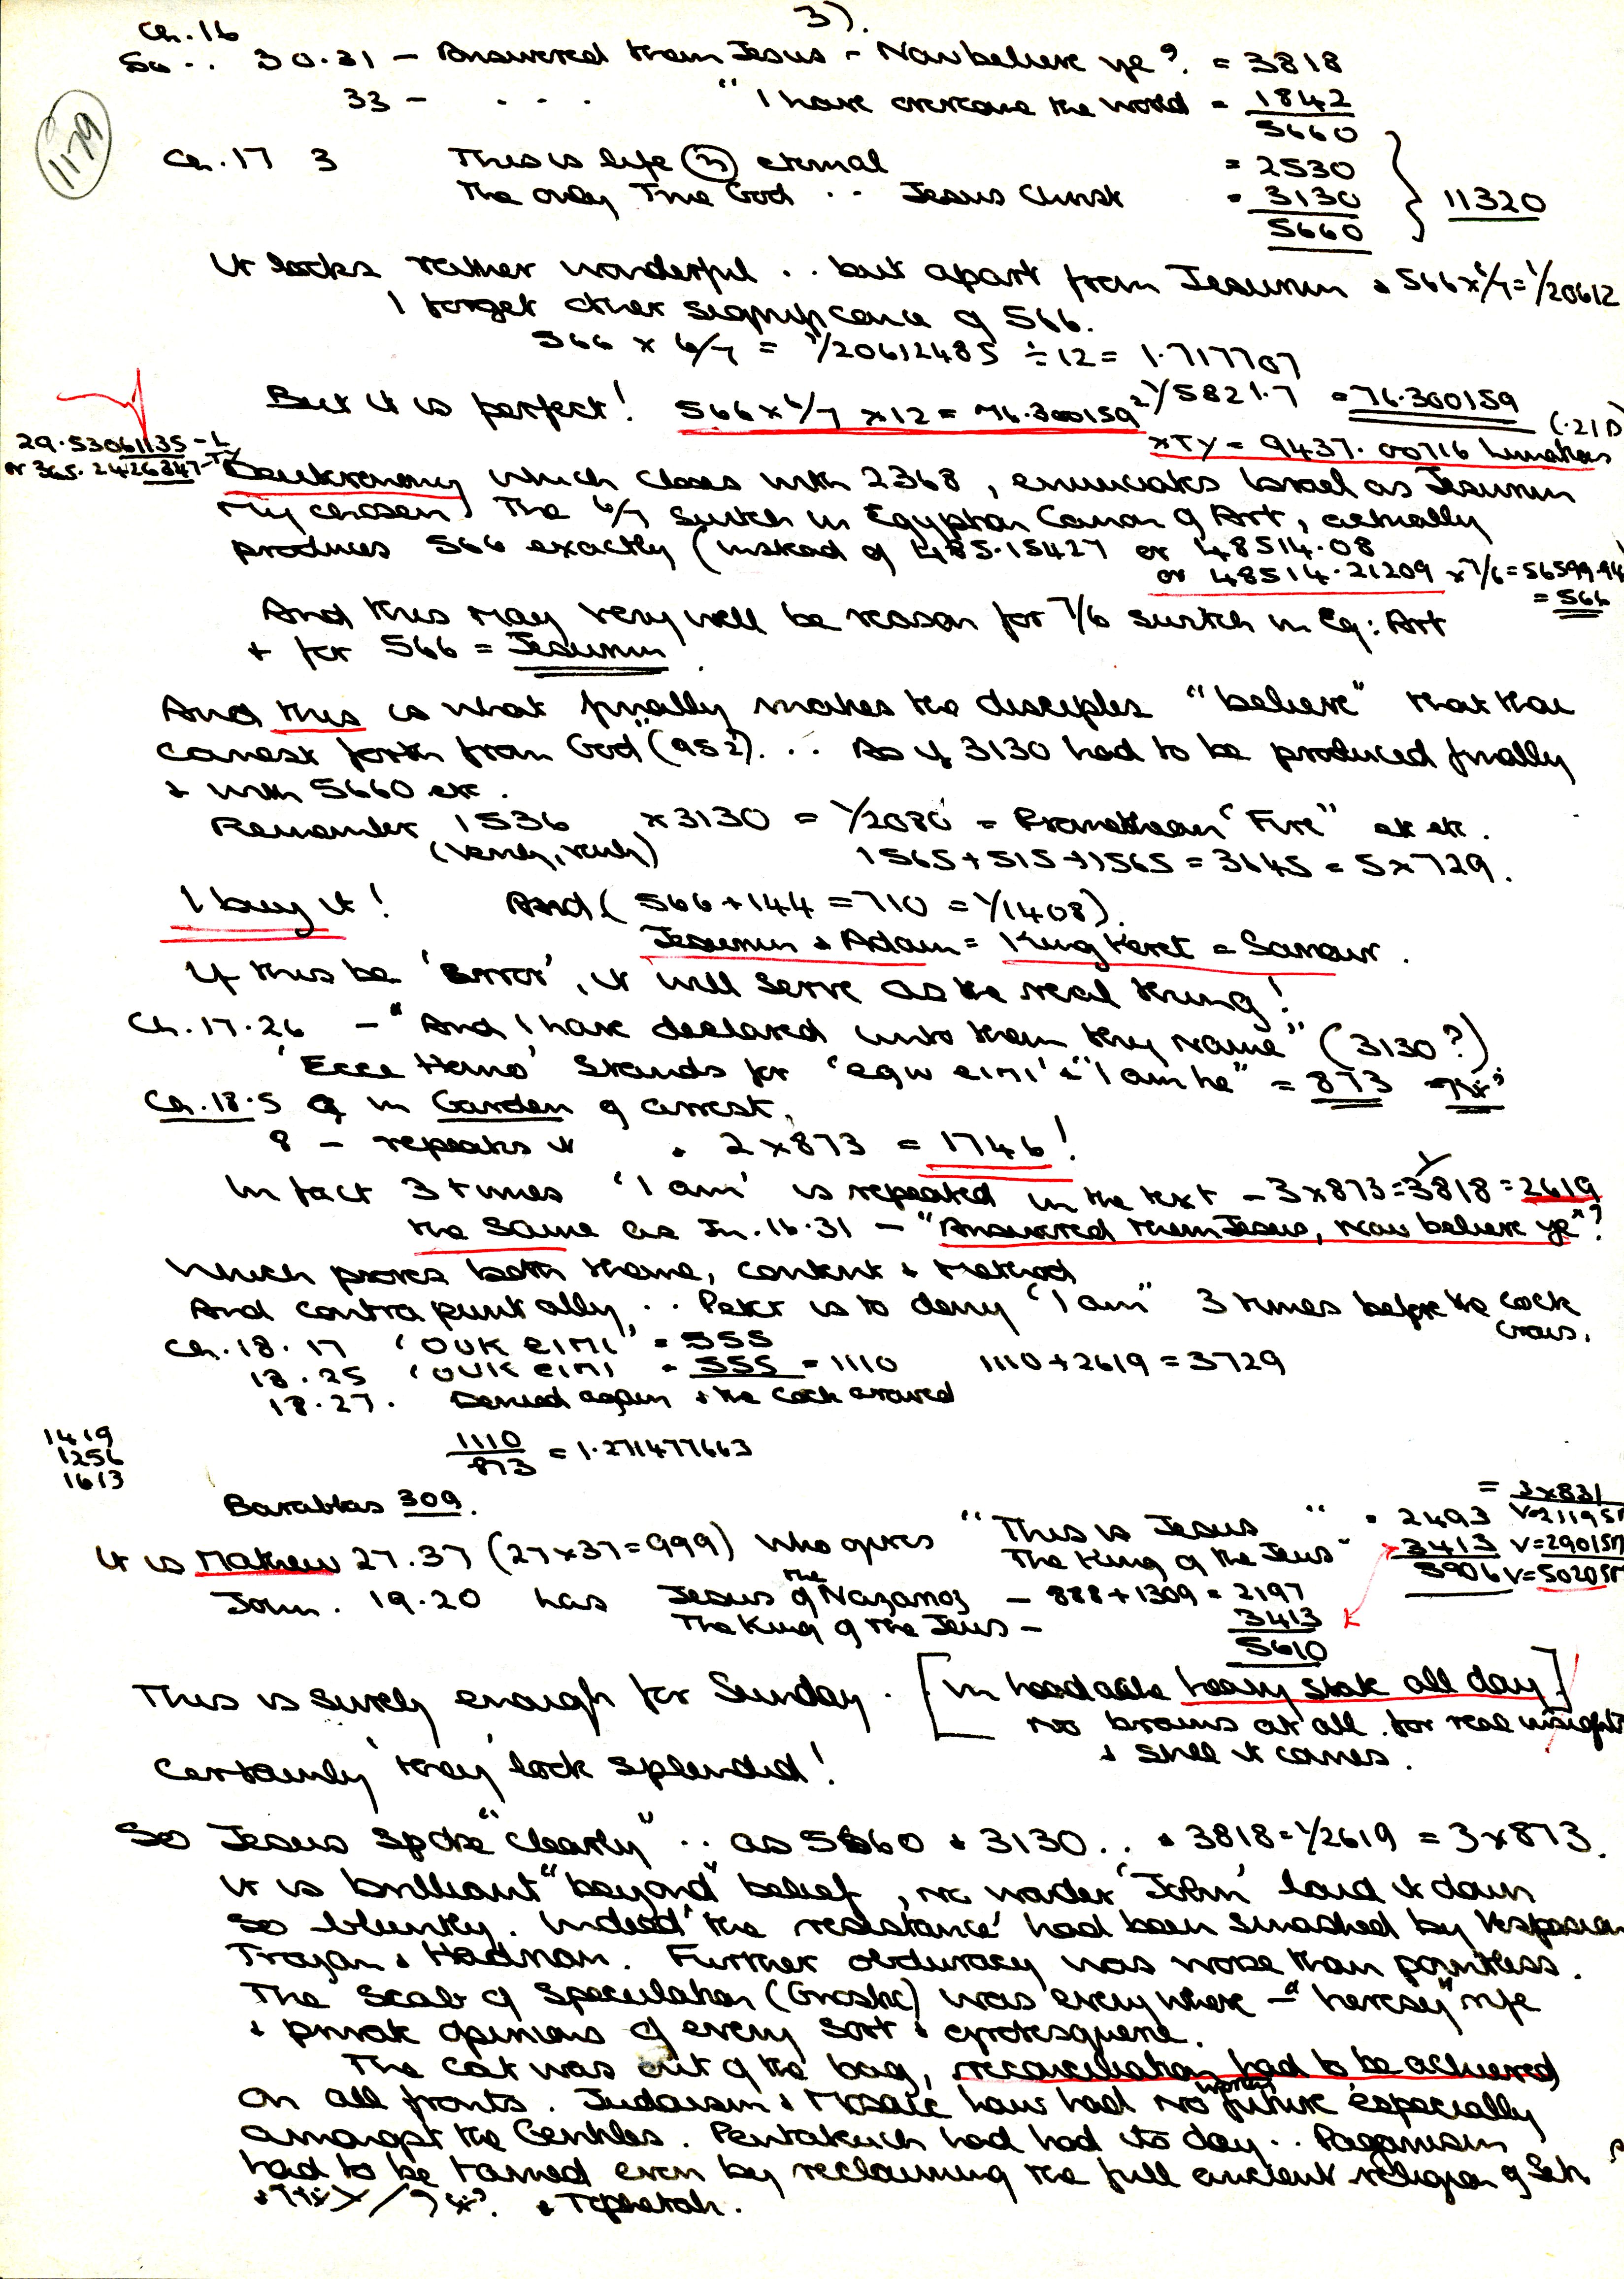 3).
Ch. 16
So .. 30.31 — Answered them Jesus – Now believe ye? = 3818
33 — . . . "I have overcome the world = 1842
5660
1179
Ch. 17 3 This is life (η) eternal = 2530
The only True God .. Jesus Christ = 3130
5660
11320
It looks rather wonderful .. but apart from Jesurun & 566 x 6/7 = 1/20612
I forget other significance of 566.
566 x 6/7 = 1/20612485 ÷ 12 = 1.717707
But it is perfect! 566 x 6/7 x 12 = 76.300159² 1/5821.7 = 76.300159
(.21D)
x TY = 9437.00716 lunations
29.53061135 – L
or 365.2426847 – TY
Deuteronomy which closes with 2368, enunciates Israel as Jesurun
My chosen. The 6/7 switch in Egyptian Canon of Art, actually
produces 566 exactly (instead of 485.15427 or 48514.08
or 48514.21209 x 7/6 = 56599.94
= 566
And this may very well be reason for 7/6 switch in Eg: Art
+ for 566 = Jesurun
And this is what finally makes the disciples "believe" that thou
camest forth from God" (952). .. As if 3130 had to be produced finally
& with 5660 etc.
Remember 1536 x 3130 = 1/2080 = Promethean 'Fire" etc etc.
(Verily, verily) 1565 + 515 + 1565 = 3645 = 5 x 729.
I buy it! And (566 + 144 = 710 = 1/1408).
Jesurun & Adam = King Keret = Saviour.
If this be 'Error', it will serve as the real thing!
Ch. 17.26 — "And I have declared unto them thy Name" (3130?)
'Ecce Homo' stands for 'egw eimi' & "I am he" = 873
Ch. 18.5 of in Garden of arrest,
8 – repeats it & 2 x 873 = 1746!
In fact 3 times 'I am' is repeated in the text – 3 x 873 = 1/3818 = 2619
the same as Jn. 16.31 — "Answered them Jesus, now believe ye"?
Which proves both theme, content & Method
And contrapuntally .. Peter is to deny "I am" 3 times before the cock
crows.
Ch. 18.17 'OUK eimi' = 555
18.25 'OUK eimi = 555 = 1110 1110 + 2619 = 3729
18.27. Denied again & the cock crowed
1419
1256
1613
1110/873 = 1.271477663
Barabbas 309.
= 3 x 831
It is Mathew 27.37 (27 x 37 = 999) who gives "This is Jesus " = 2493 V=21195π
The King of the Jews" 3413 V=29015π
5906 V=50205π
John. 19.20 has Jesus of the Nazarnoz — 888 + 1309 = 2197
The King of the Jews — 3413
5610
This is surely enough for Sunday. [In headache heavy state all day]
no brains at all for real insight
& still it comes.
Certainly 'they' look splendid!
So Jesus spoke "clearly" .. as 5660 & 3130 .. & 3818 = 1/2619 = 3 x 873.
It is brilliant "beyond" belief, no wonder 'John' laid it down
so bluntly. Indeed 'the resistance' had been smashed by Vespasian
Trajan & Hadrian. Further obduracy was worse than pointless.
The Scab of Speculation (Gnostic) was everywhere — "heresy" rife
& private opinions of every sort & grotesquerie.
The cat was out of the bag, reconciliation had to be achieved
on all fronts. Judaism & Mosaic laws had no future especially
amongst the Gentiles. Pentateuch had had its day .. Paganism
had to be tamed even by reclaiming the full ancient religion of Seth
& Tephetah.